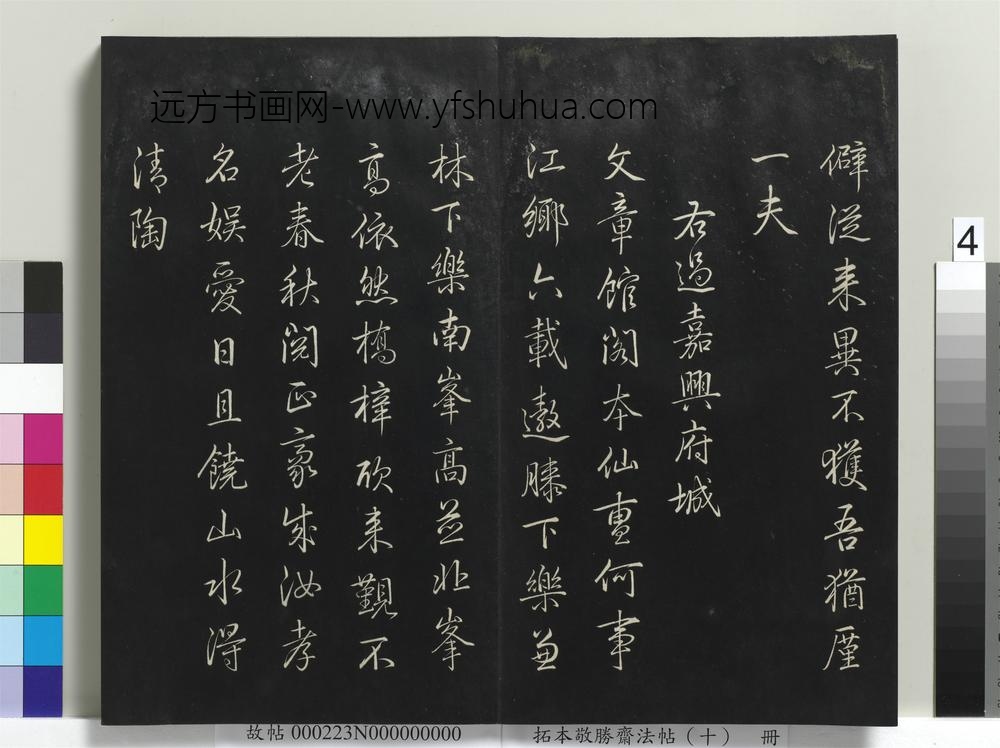 远方书画网-www.yfshuhua.com
僻從来異不獲吾猶厪
一夫
右過嘉興府城
文章館阁本仙曹何事
江鄉六載遨膝下樂兼
林下樂南峯高並北峯
高依然橋梓欣来覲不
老春秋閲正豪成汝孝
名娛愛日且饒山水得
清陶
4
故帖 000223N000000000
拓本敬勝齋法帖（十） 冊